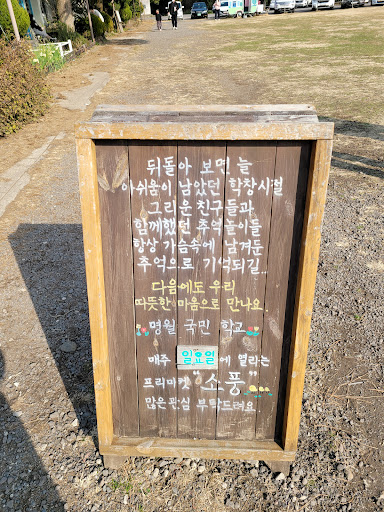 뒤돌아 보면 늘
아쉬움이 남았던 학창시절
그리운 친구들과
함께했던 추억놀이들
항상 가슴속에 남겨둔
추억으로 기억되길...
다음에도 우리
따뜻한 마음으로 만나요.
명월 국민 학교
매주 일요일에 열리는
프리마켓 "소풍"
많은 관심 부탁드려요